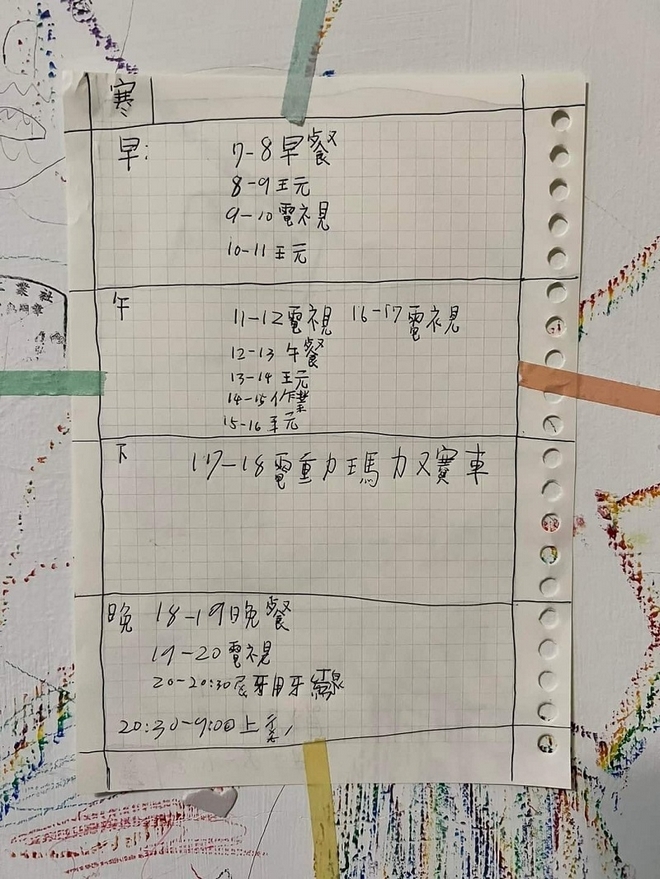 寒
早:
7-8早餐
8-9王元
9-10電視
10-11王元
午
11-12電視 16-17電視
12-13午餐
13-14王元
14-15作業
15-16王元
下
17-18電重力瑪力又賽車
晚 18-19晚餐
19-20電視
20-20:30 牙用牙線
20:30-9:00上
業社